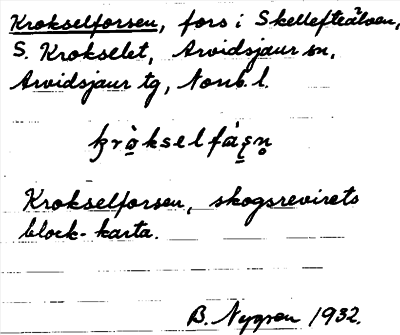 Krokselforsen, fors i Skellefteälven,
S. Krokselet, Arvidsjaur sn,
Arvidsjaur tg, Norrb. l.
Krokselforsen, skogsrevirets
block-karta.
B. Nygren 1932.